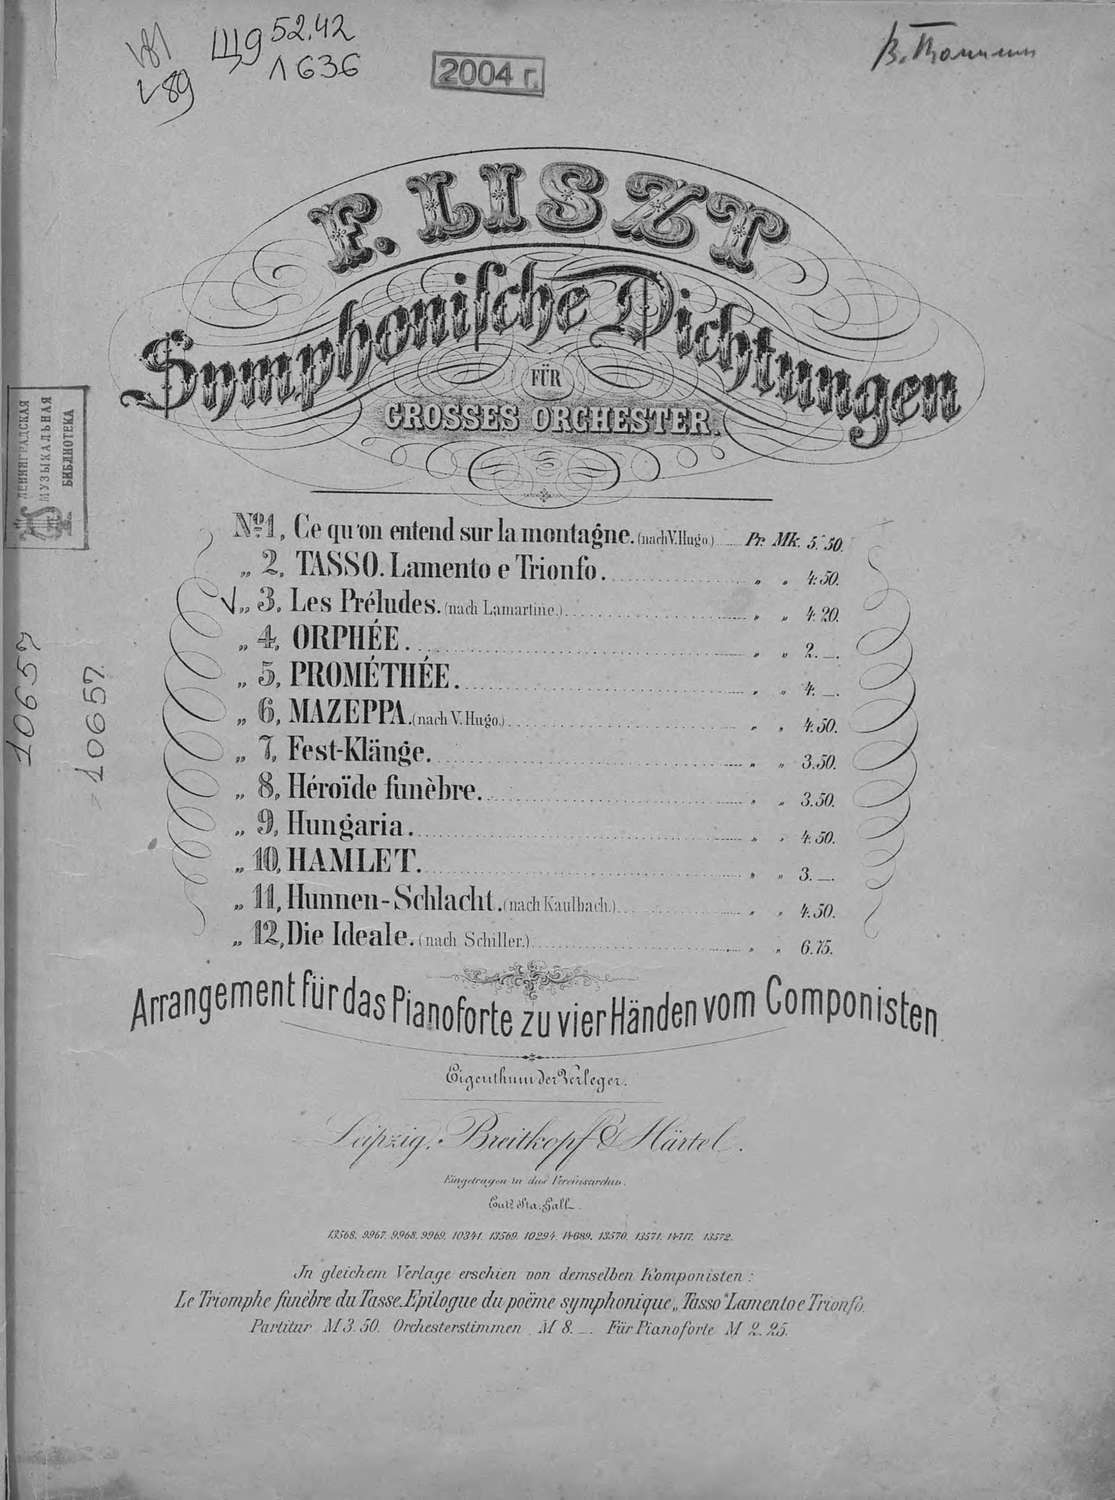 Щ9 52.42
Л 636
489
2004 г.
F. LISZT
Symphonische Dichtungen
FÜR
GROSSES ORCHESTER.
ЛЕНИНГРАДСКАЯ
МУЗЫКАЛЬНАЯ
БИБЛИОТЕКА
10657
10657.
No. 1, Ce qu'on entend sur la montagne. (nach V. Hugo.) Pr. Mk. 5. 50.
„ 2, TASSO. Lamento e Trionfo. „ „ 4. 50.
„ 3, Les Préludes. (nach Lamartine.) „ „ 4. 20.
„ 4, ORPHÉE. „ „ 2. —.
„ 5, PROMÉTHÉE. „ „ 4. —.
„ 6, MAZEPPA. (nach V. Hugo.) „ „ 4. 50.
„ 7, Fest-Klänge. „ „ 3. 50.
„ 8, Héroïde funèbre. „ „ 3. 50.
„ 9, Hungaria. „ „ 4. 50.
„ 10, HAMLET. „ „ 3. —.
„ 11, Hunnen-Schlacht. (nach Kaulbach.) „ „ 4. 50.
„ 12, Die Ideale. (nach Schiller.) „ „ 6. 75.
Arrangement für das Pianoforte zu vier Händen vom Componisten.
Eigenthum der Verleger.
Leipzig, Breitkopf & Härtel.
Eingetragen in das Vereinsarchiv.
Ent? Sta. Hall.
13568. 9967. 9968. 9969. 10341. 13569. 10294. 14689. 13570. 13571. 14717. 13572.
In gleichem Verlage erschien von demselben Komponisten:
Le Triomphe funèbre du Tasse. Epilogue du poëme symphonique „Tasso" Lamento e Trionfo.
Partitur M 3. 50. Orchesterstimmen M 8. — Für Pianoforte M 2. 25.